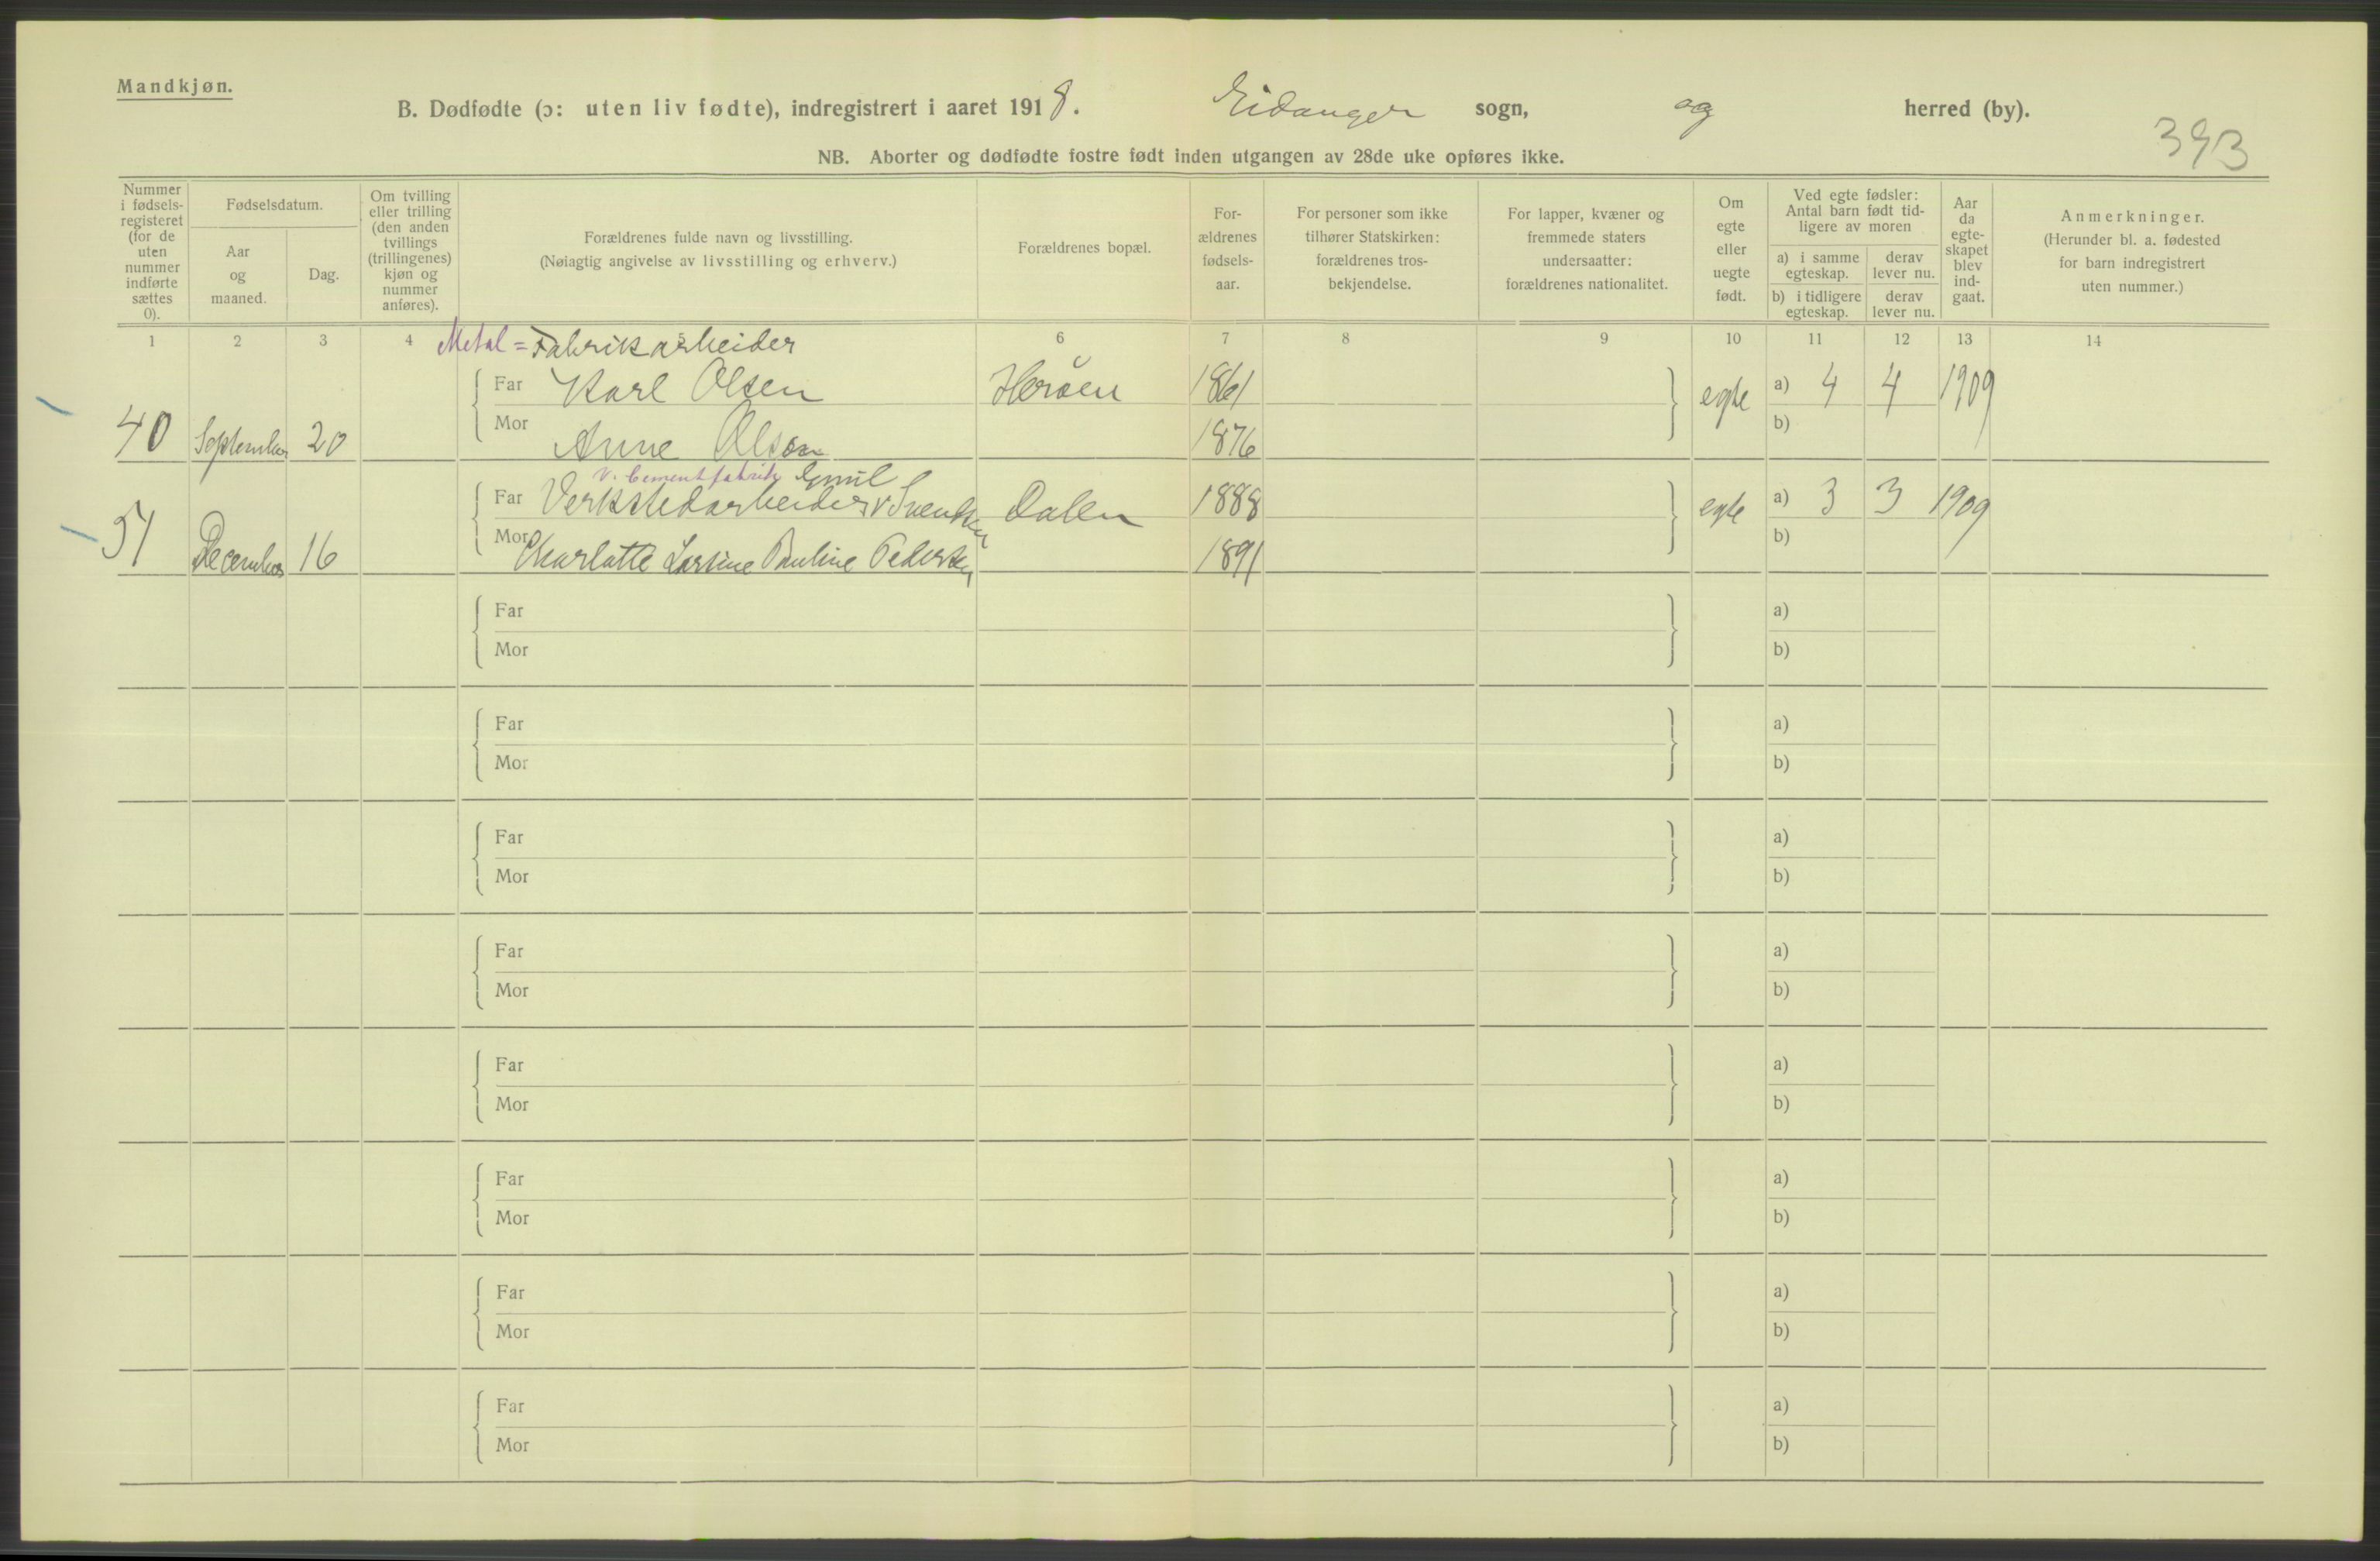 Mandkjøn.
B. Dødfødte (ɔ: uten liv fødte), indregistrert i aaret 1918. Eidanger sogn, og herred (by).
393
NB. Aborter og dødfødte fostre født inden utgangen av 28de uke opføres ikke.
Nummer i fødsels-registeret (for de uten nummer indførte sættes 0).
Fødselsdatum.
Aar og maaned.
Dag.
Om tvilling eller trilling (den anden tvillings (trillingenes) kjøn og nummer anføres).
Forældrenes fulde navn og livsstilling.
(Nøiagtig angivelse av livsstilling og erhverv.)
Forældrenes bopæl.
For-ældrenes fødsels-aar.
For personer som ikke tilhører Statskirken: forældrenes tros-bekjendelse.
For lapper, kvæner og fremmede staters undersaatter: forældrenes nationalitet.
Om egte eller uegte født.
Ved egte fødsler: Antal barn født tid-ligere av moren
a) i samme egteskap.
derav lever nu.
b) i tidligere egteskap.
derav lever nu.
Aar da egte-skapet blev ind-gaat.
Anmerkninger.
(Herunder bl. a. fødested for barn indregistrert uten nummer.)
1 2 3 4 6 7 8 9 10 11 12 13 14
Metal = Fabrikarbeider
Far Karl Olsen Herøen 1861 egte a) 4 4 1909
40 September 20 Mor Anne Olsen 1876 b)
v. Cementfabrik Emil
Far Verkstedarbeider Svendsen Dalen 1888 egte a) 3 3 1909
51 December 16 Mor Charlotte Larsine Pauline Pedersen 1891 b)
Far a)
Mor b)
Far a)
Mor b)
Far a)
Mor b)
Far a)
Mor b)
Far a)
Mor b)
Far a)
Mor b)
Far a)
Mor b)
Far a)
Mor b)